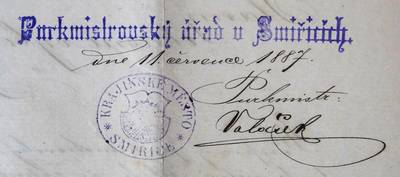 Purkmistrovský úřad v Smiřicích.
dne 11. července 1887.
Purkmistr:
* KRAJINSKÉ MĚSTO * SMIŘICE